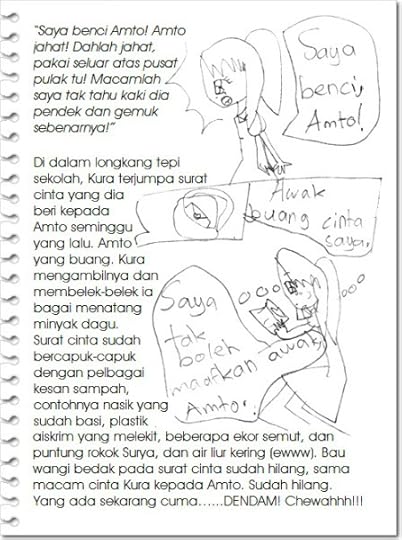 “Saya benci Amto! Amto
jahat! Dahlah jahat,
pakai seluar atas pusat
pulak tu! Macamlah
saya tak tahu kaki dia
pendek dan gemuk
sebenarnya!”
Saya
benci,
Amto!
Di dalam longkang tepi
sekolah, Kura terjumpa surat
cinta yang dia
beri kepada
Amto seminggu
yang lalu. Amto
yang buang. Kura
mengambilnya dan
membelek-belek ia
bagai menatang
minyak dagu.
Surat cinta sudah
bercapuk-capuk
dengan pelbagai
kesan sampah,
contohnya nasik yang
sudah basi, plastik
aiskrim yang melekit, beberapa ekor semut, dan
puntung rokok Surya, dan air liur kering (ewww). Bau
wangi bedak pada surat cinta sudah hilang, sama
macam cinta Kura kepada Amto. Sudah hilang.
Yang ada sekarang cuma......DENDAM! Chewahhh!!!
Awak
buang cinta
saya.
Saya
tak
boleh
maafkan awak
Amto!